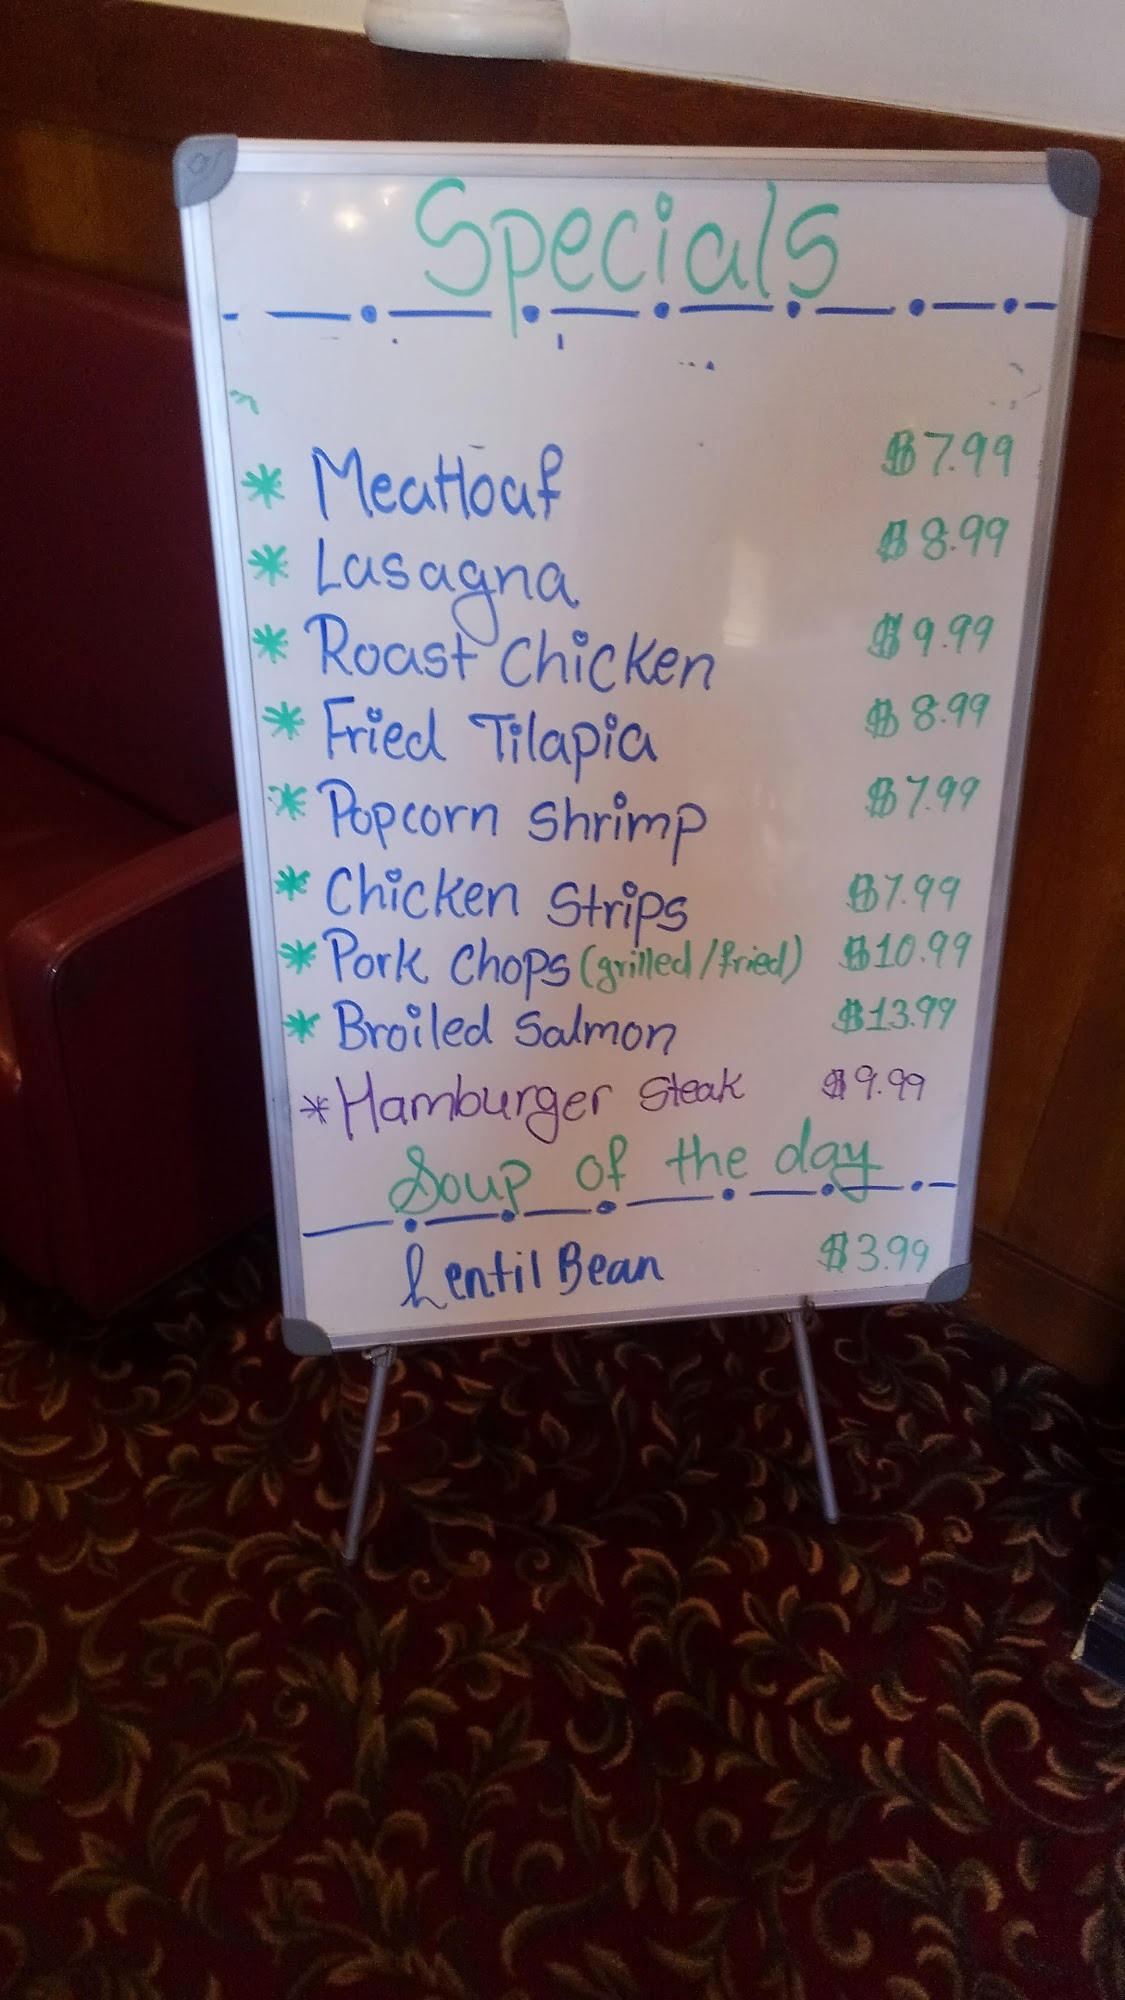 Specials
* Meatloaf $7.99
* Lasagna $8.99
* Roast Chicken $9.99
* Fried Tilapia $8.99
* Popcorn Shrimp $7.99
* Chicken Strips $7.99
* Pork Chops (grilled/fried) $10.99
* Broiled Salmon $13.99
* Hamburger Steak $9.99
Soup of the day
Lentil Bean $3.99